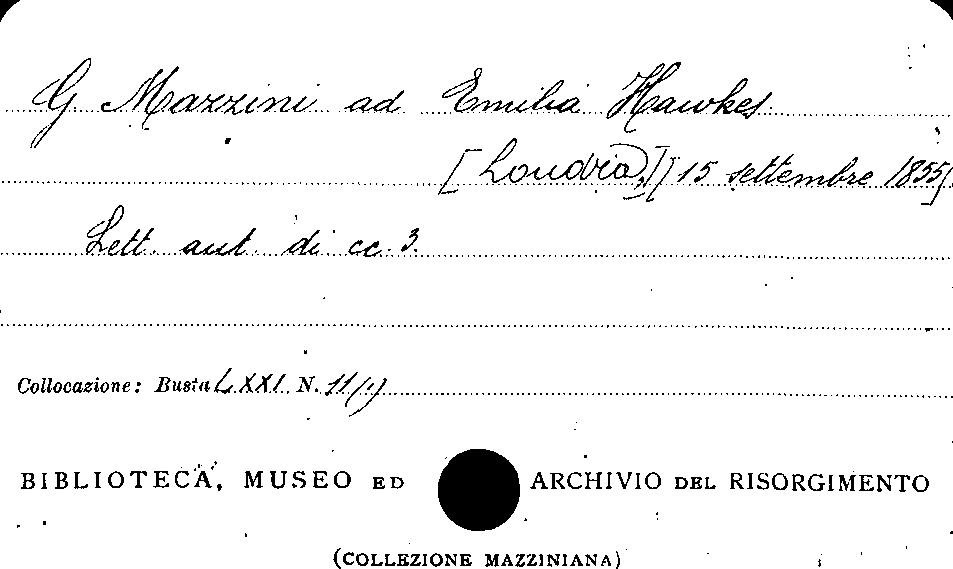 G Mazzini ad Emilia Hawkes
[Londra,] [15 settembre 1855]
Lett. aut. di cc. 3.
Collocazione: Busta LXXI N. 11(1)
BIBLIOTECA, MUSEO ED ARCHIVIO DEL RISORGIMENTO
(COLLEZIONE MAZZINIANA)